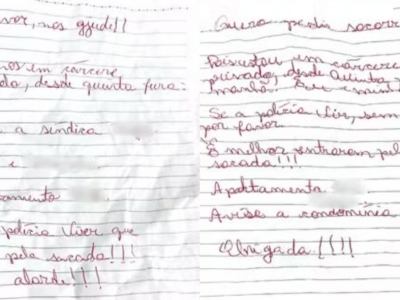 vor, nos ajude!!
nos em cárcere
do, desde quinta fura:
a síndica
e
tamento
polícia vier que
pela sacada!!!
alarde!!!
Quero pedir socorr
Pois estou em cárcere
privado, desde Quinta
manhã. Eu e minh
Se a polícia vir, sem
por favor
É melhor entrarem pel
sacada!!!
Apartamento
Avise a condomínia
Obrigada!!!!